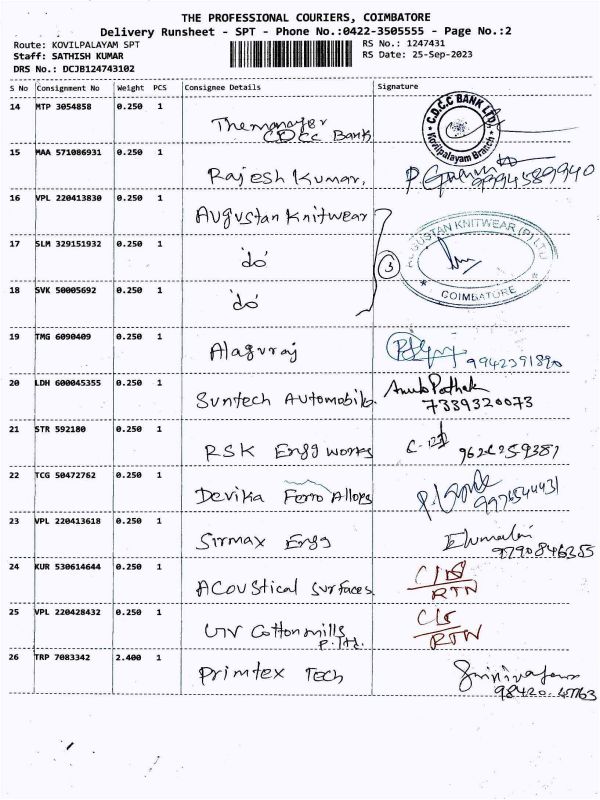 THE PROFESSIONAL COURIERS, COIMBATORE
Delivery Runsheet - SPT - Phone No.:0422-3505555 - Page No.:2
Route: KOVILPALAYAM SPT
RS No.: 1247431
Staff: SATHISH KUMAR
RS Date: 25-Sep-2023
DRS No.: DCJB124743102
S No Consignment No Weight PCS Consignee Details Signature
14 MTP 3054858 0.250 1 The manager
CDCC Bank
C.D.C.C BANK LTD.
Kovilpalayam Branch
15 MAA 571086931 0.250 1 Rajesh Kumar,
9994589940
16 VPL 220413830 0.250 1 Augustan Knitwear
17 SLM 329151932 0.250 1 'do'
3
AUGUSTAN KNITWEAR (P) LTD
COIMBATORE
18 SVK 50005692 0.250 1 'do'
19 TMG 6090409 0.250 1 Alaguraj
9942391890
20 LDH 600045355 0.250 1 Suntech Automobile.
7339320073
21 STR 592180 0.250 1 RSK Engg works
22 TCG 50472762 0.250 1 Devika Ferro Alloys
23 VPL 220413618 0.250 1 Sirmax Engg
Elumalai
9790846255
24 KUR 530614644 0.250 1 Acoustical surfaces.
RTN
25 VPL 220428432 0.250 1 UV Cotton mills
P. ltd.
RTN
26 TRP 7083342 2.400 1 Primtex Tech